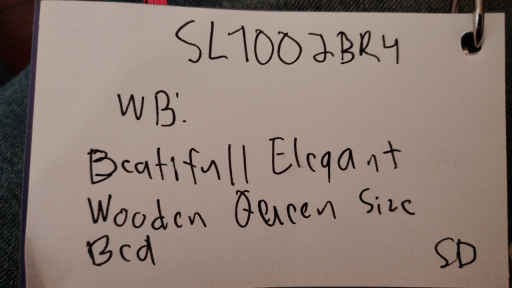 SL1002BR4
WB:
Beatifull Elegant
Wooden Queen Size
Bed
SD